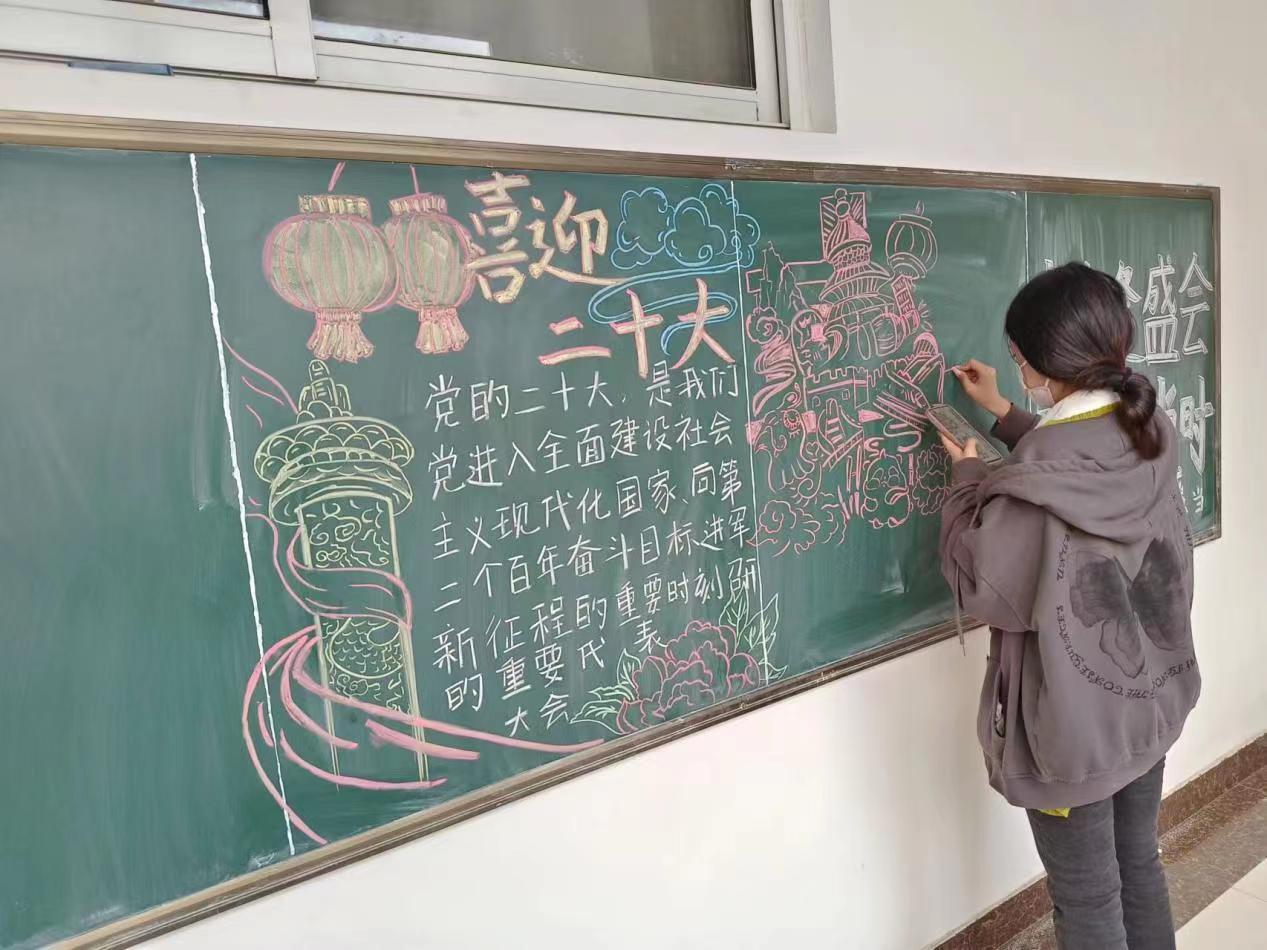 喜迎
二十大
党的二十大，是我们
党进入全面建设社会
主义现代化国家、向第
二个百年奋斗目标进军
新征程的重要时刻召开
的重要代表
大会
盛会
时